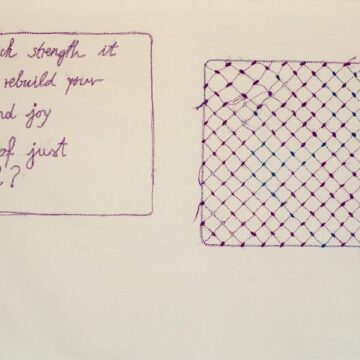 strength it
rebuild your
joy
of just
?